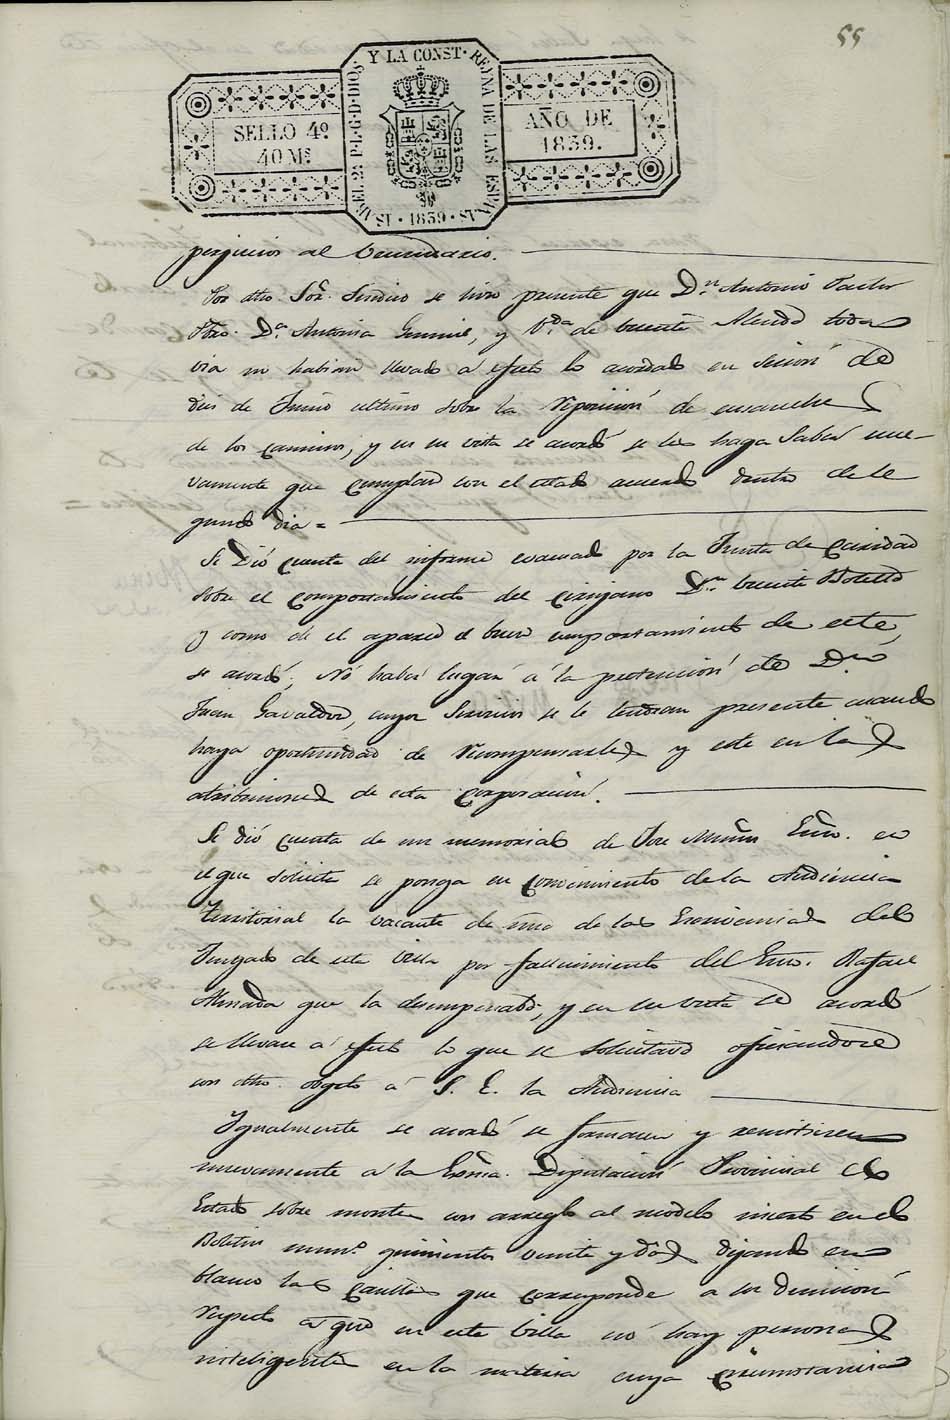 55
SELLO 4º
40 Ms
ISABEL 2ª P.L.G.D.DIOS Y LA CONST. REYNA DE LAS ESPAÑAS
1839
AÑO DE
1839.
perjuicios al Vecindario.
Por dho Sor. Sindico se hizo presente que Dn. Antonio
Pbro. Da. Antonia y Vda. de Vicente toda
via no habian llevado a efecto lo acordado en Sesion de
dies de Junio ultimo sobre la reposicion de ensanche
de los caminos, y en su vista se acordó se les haga Saber nue-
vamente que cumplan con el citado acuerdo dentro de se
gundo dia =
Se Dió cuenta del informe evacuado por la Junta de Caridad
sobre el comportamiento del Cirujano Dn. Vicente Botella
y como de el aparece el buen comportamiento de este,
se acordó; No haber lugar á la pretencion de Dn.
Juan Gavaldon, cuyos Servicios se le tendran presente cuando
haya oportunidad de recompensarles y este en las
atribuciones de esta Corporacion.
Se dió cuenta de un memorial de Jose Esno. en
el que solicita se ponga en conocimiento de la Audiencia
territorial la vacante de una de las Escribanias del
Juzgado de esta Villa por fallecimiento del Esno. Rafael
que la desempeñaba; y en su vista se acordó
se llevase a efecto lo que se solicitava oficiandose
con dho. objeto á S. E. la Audiencia
Igualmente se acordó se formasen y remitiesen
nuevamente a la Exma. Diputacion Provincial el
Estado sobre montes con arreglo al modelo inserto en el
Boletin numo. quinientos veinte y dos dejando en
blanco las casillas que corresponde a su dimension
respecto a que en esta Villa no hay personas
inteligentes en la materia cuya circunstancia